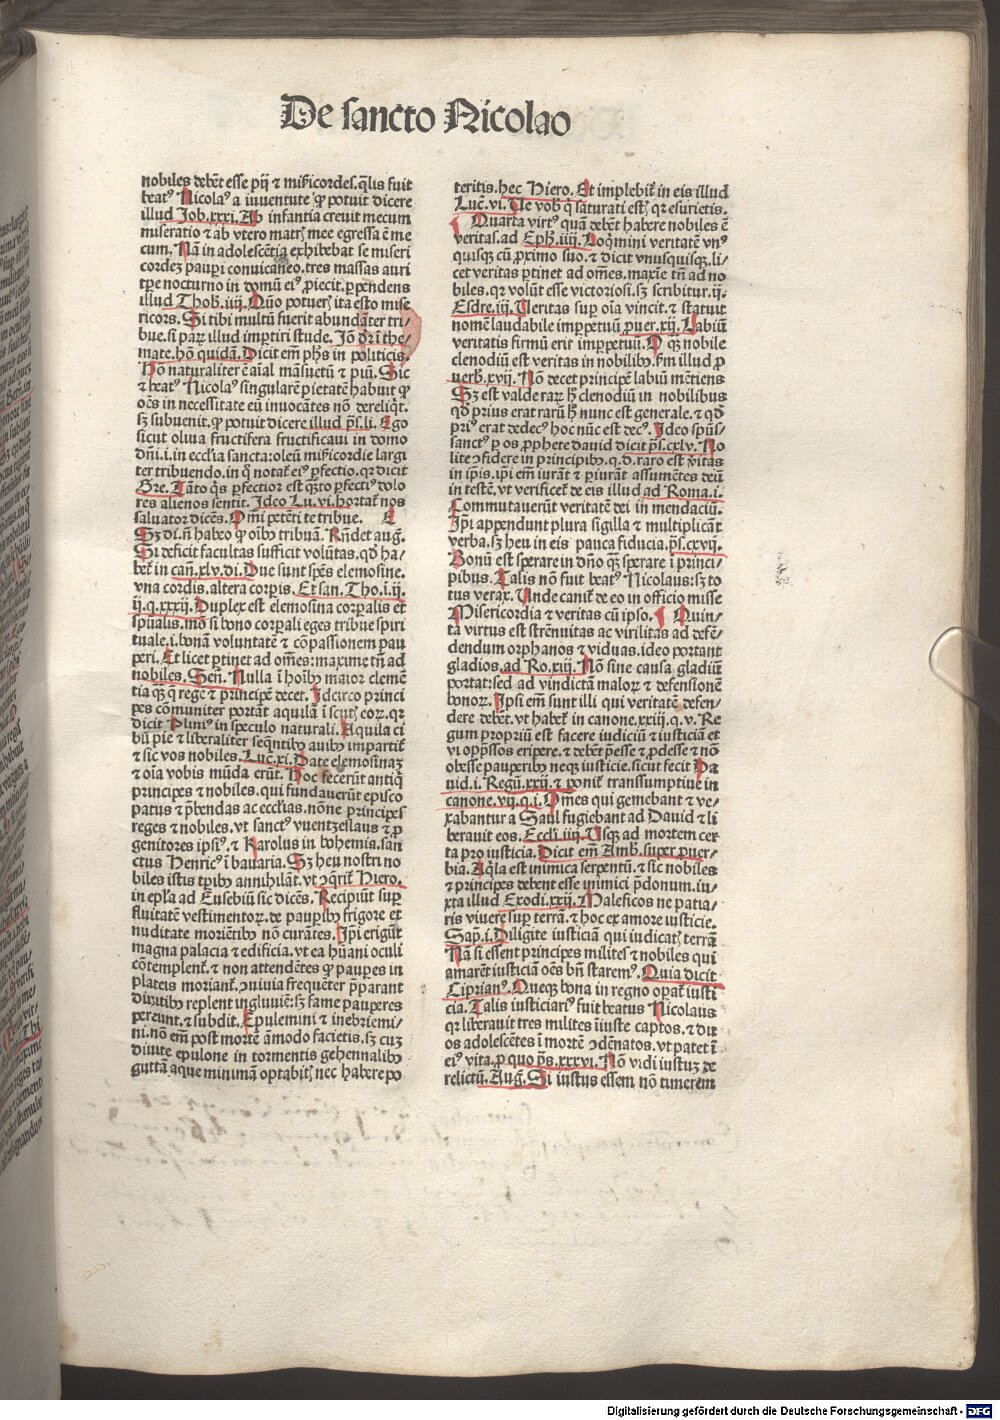 De sancto Nicolao
nobiles debēt esse pij ⁊ mīcordes. q̄lis fuit
beatꝰ Nicolaꝰ a iuuentute ꝙ potuit dicere
illud Job .xxxi. Ab infantia creuit mecum
miseratio ⁊ ab vtero matrꝭ mee egressa ē me
cum. Nā in adolescētia exhibebat se miseri
cordeꝫ pauꝑi conuicaneo. tres massas auri
ꝑ̱e nocturno in domū eiꝰ ꝓiecit. ꝑpendens
illud Thob̄. iiij. Quō potuerꝭ ita esto mise
ricors. Si tibi multū fuerit abundāter tri⸗
bue. si paꝝ illud impꝑtiri stude. Jō dr̄ ī the⸗
mate. hō quidā. Dicit em̄ ph̄s in politicis.
Hō naturaliter ē aīal māsuetū ⁊ piū. Sic
⁊ beatꝰ Nicolaꝰ singularē pietatē habuit ꝙ
oēs in necessitate eū inuocātes nō dereliq̇t.
sꝫ subuenit. ꝙ potuit dicere illud p̄s. li. Ego
sicut oliua fructifera fructificaui in domo
dn̄i .i. in eccl̄ia sancta: oleū mīcordie largi
ter tribuendo. in q̄ notat᷑ eiꝰ ꝑfectio. qꝛ dicit
Gre. Tāto q̇s ꝑfectior est qꝫto ꝑfectiꝰ dolo
res alienos sentit. Jdeo Lu. vi. hortat᷑ nos
saluator dicēs. Om̄i petēti te tribue. E
Sꝫ di. n̄ habeo ꝙ oībꝰ tribuā. Rn̄det aug.
Si deficit facultas sufficit volūtas. qd̓ ha⸗
bet᷑ in can̄. xlv. di. Due sunt spēs elemosine.
vna cordis. altera corꝑis. Et san. Tho. i. ij.
ij. q. xxxij. Duplex est elemosina corꝑalis et
spūalis. mō si bono corꝑali eges tribue spiri
tuale .i. bonā voluntatē ⁊ cōpassionem pau
peri. Et licet ꝑtinet ad om̄es: maxime tn̄ ad
nobiles. Sen̄. Nulla ī hoībꝰ maior clemē
tia qꝫ q̄ rege ⁊ principē decet. Jdcirco princi
pes cōmuniter portāt aquilā ī scutꝭ eoꝝ. qꝛ
dicit Pliniꝰ in speculo naturali. Aquila ci
bū pie ⁊ liberaliter seqn̄tibꝰ auibꝰ impartit᷑
⁊ sic vos nobiles. Luc. xi. Date elemosinaꝫ
⁊ oīa vobis mūda erūt. Hoc fecerūt antiq̇
principes ⁊ nobiles. qui fundauerūt episco
patus ⁊ p̄bendas ac eccl̄ias. nōne principes
reges ⁊ nobiles. vt sanctꝰ vuentzeslaus ⁊ ꝓ
genitores ipsiꝰ. ⁊ Karolus in bohemia. san
ctus Henricꝰ ī bauaria. Sꝫ heu nostri no
biles istis tꝑibꝰ annihilāt. vt ꝯq̄rit᷑ Hiero.
in ep̄la ad Eusebiū sic dicēs. Recipiūt suꝑ
fluitatē vestimentoꝝ. de pauꝑibꝰ frigore et
nuditate moriētibꝰ nō curātes. Jpi̅ erigūt
magna palacia ⁊ edificia. vt ea hūani oculi
cōtemplent᷑. ⁊ non attendētes ꝙ pauꝑes in
plateis moriant᷑. ꝯuiuia frequēter p̄parant
diuitibꝰ replent ingluuiē: sꝫ fame pauperes
pereunt. ⁊ subdit. Epulemini ⁊ inebriemi⸗
ni. nō em̄ post mortē āmodo facietis. sꝫ cuꝫ
diuite epulone in tormentis gehennalibꝰ
guttā aque minimā optabitꝭ nec habere po
teritis. hec Hiero. Et implebit᷑ in eis illud
Luc̄. vi. Ve vob̄ q̇ saturati estꝭ qꝛ esurietis.
Quarta virtꝰ quā debēt habere nobiles ē
veritas. ad Eph̄. iiij. Loq̇mini veritatē vnꝰ
quisqꝫ cū ꝓximo suo. ⁊ dicit vnusquisqꝫ. li⸗
cet veritas ꝑtinet ad om̄es. maxīe tn̄ ad no
biles. qꝛ volūt esse victoriosi. sꝫ scribitur. ij.
Esdre. iij. Ueritas suꝑ oīa vincit. ⁊ statuit
nomē laudabile imꝑpetuū ꝓuer. xij. Labiū
veritatis firmū erit imꝑpetuū. O qꝫ nobile
clenodiū est veritas in nobilibꝰ. ẜm illud ꝓ
uerb̄. xvij. Nō decet principē labiū mētiens
Sꝫ est valde raꝝ h̄ clenodiū in nobilibus
qd̓ prius erat rarū h̄ nunc est generale. ⁊ qd̓
priꝰ erat dedecꝰ hoc nūc est decꝰ. Jdeo spūs
sanctꝰ ꝑ os ꝓphete dauid dicit p̄s. cxlv. No
lite ꝯfidere in principibꝰ. q. d. raro est v̄itas
in ip̄is. ip̄i em̄ iurāt ⁊ ꝑiurāt assumētes deū
in testē. vt verificet᷑ de eis illud ad Roma. i.
Commutauerūt veritatē dei in mendaciū.
Jp̄i appendunt plura sigilla ⁊ multiplicāt
verba. sꝫ heu in eis pauca fiducia. p̄s. cxvij.
Bonū est sperare in dn̄o qꝫ sperare ī princi⸗
pibus. Talis nō fuit beatꝰ Nicolaus: sꝫ to
tus verax. Unde canit᷑ de eo in officio misse
Misericordia ⁊ veritas cū ipso. ¶ Quin⸗
ta virtus est strēnuitas ac virilitas ad defē⸗
dendum orphanos ⁊ viduas. ideo portant
gladios. ad Ro. xiij. Nō sine causa gladiū
portat: sed ad vindictā maloꝝ ⁊ defensionē
bonoꝝ. Jpsi em̄ sunt illi qui veritatē defen⸗
dere debēt. vt habet᷑ in canone. xxiij. q. v. Re
gum propriū est facere iudiciū ⁊ iusticiā et
vi opp̄ssos eripere. ⁊ debēt p̄esse ⁊ ꝓdesse ⁊ nō
obesse pauꝑibꝰ neqꝫ iusticie. sicut fecit Da
uid. i. Regū. xxij. ⁊ ponit᷑ transsumptiue in
canone. vij. q. i. Om̄es qui gemebant ⁊ ve⸗
xabantur a Saul fugiebant ad Dauid ⁊ li
berauit eos. Eccl̄i. iiij. Usqꝫ ad mortem cer
ta pro iusticia. Dicit em̄ Amb̄. super ꝓuer⸗
bia. Aq̇la est inimica serpentū. ⁊ sic nobiles
⁊ principes debent esse inimici p̄donum. iu⸗
xta illud Exodi. xxij. Maleficos ne patia⸗
ris viuere suꝑ terrā. ⁊ hoc ex amore iusticie.
Sap̄. i. Diligite iusticiā qui iudicatꝭ terrā
Nā si essent principes milites ⁊ nobiles qui
amarēt iusticiā oēs bn̄ staremꝰ. Quia dicit
Ciprianꝰ. Queqꝫ bona in regno oꝑat᷑ iusti
cia. Talis iusticiariꝰ fuit beatus Nicolaus
qꝛ liberauit tres milites īiuste captos. ⁊ du
os adolescētes ī mortē ꝯdēnatos. vt patet ī
eiꝰ vita. ꝑ quo p̄s. xxxvi. Nō vidi iustuꝫ de
relictū. Aug. Si iustus essem nō timerem
Digitalisierung gefördert durch die Deutsche Forschungsgemeinschaft - DFG